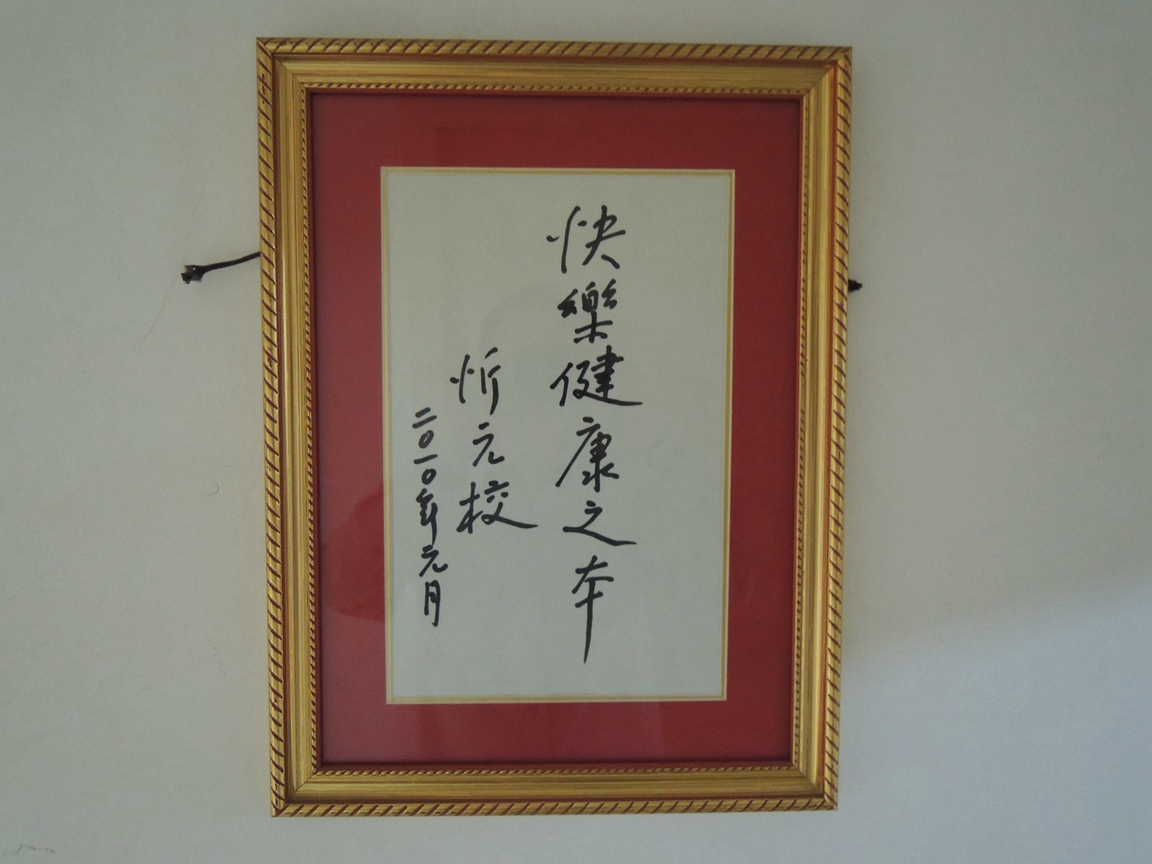 快樂健康之本
忻元校
二〇一〇年元月